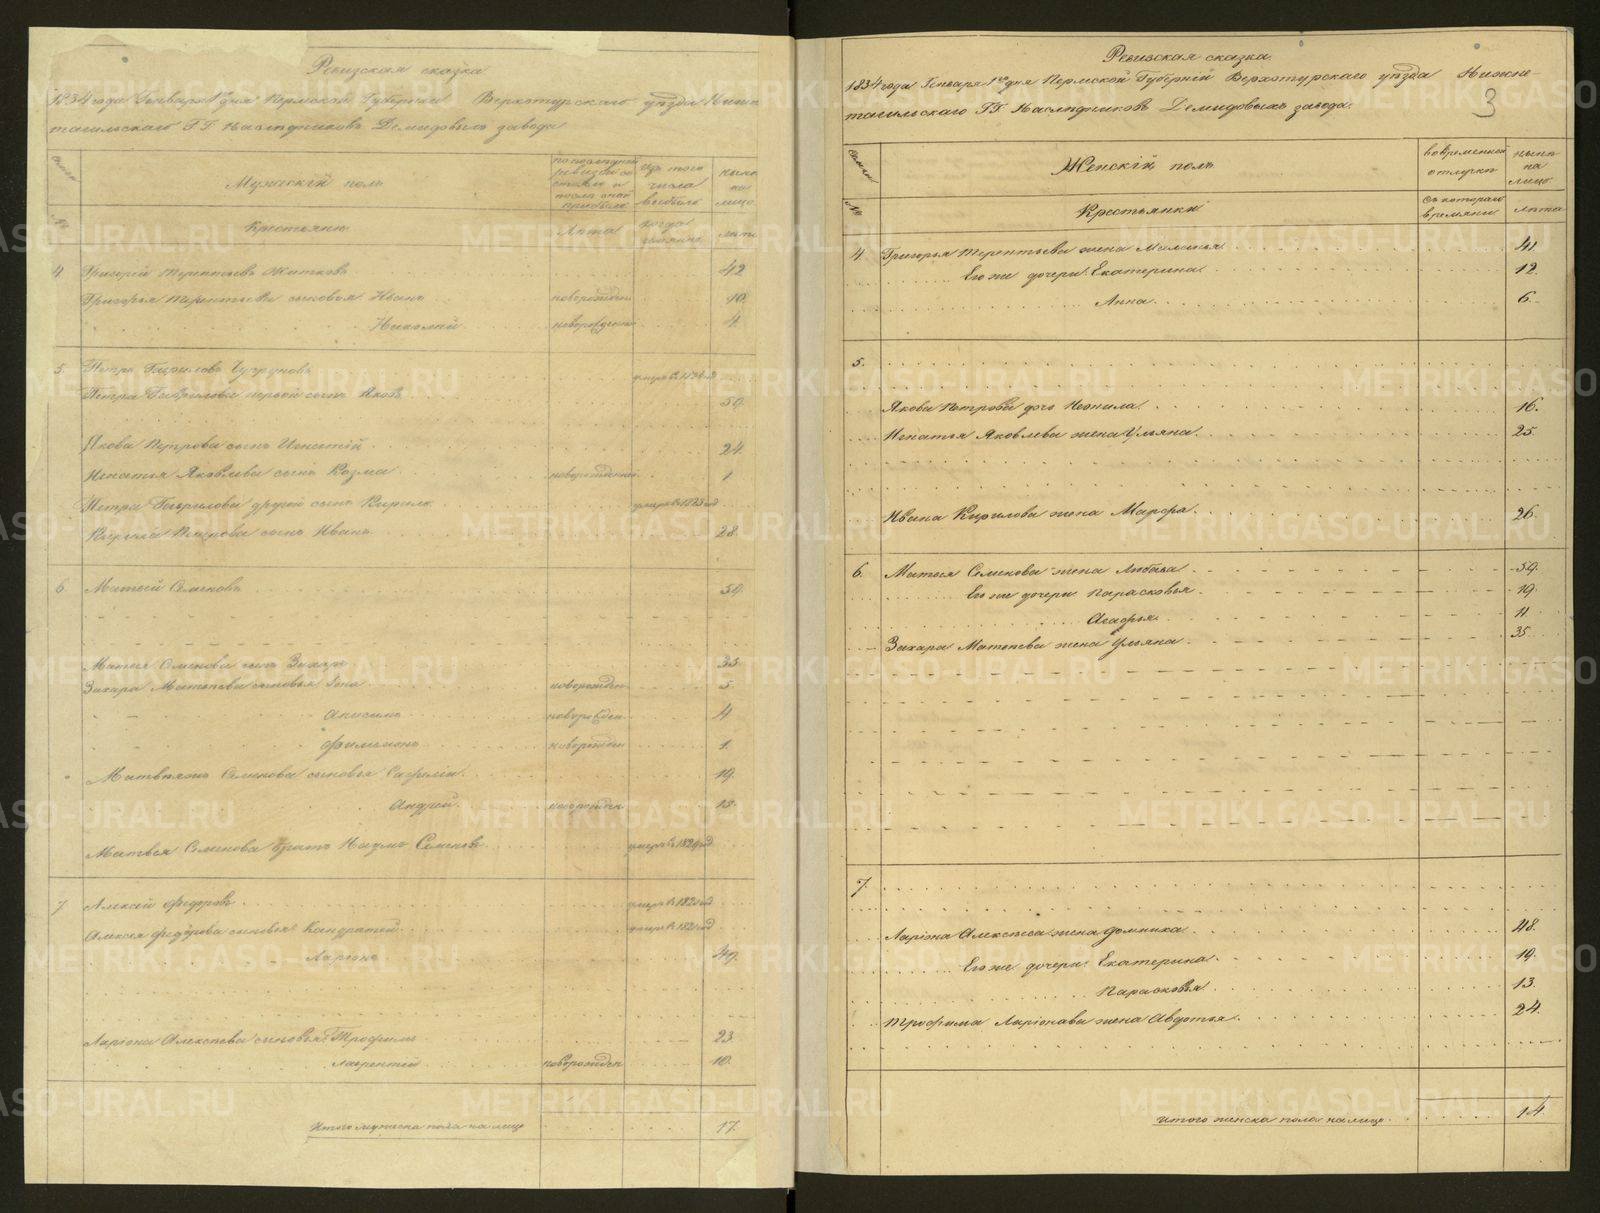 Ревизская сказка
1834 года Генваря 1го дня Пермской Губернии Верхотурскаго уѣзда Нижне
тагильскаго Г.Г. Наслѣдниковъ Демидовыхъ завода
Мужескій полъ
изъ того числа выбыло
нынѣ на лицо
№
Крестьяне
Лѣта
когда
лѣта
4 Григорій Терентьевъ 42
Григорья Терентьева сыновья Иванъ новорожден 10
Николай новорожден 4
5. Петръ Гавриловъ умеръ въ
Петра Гаврилова первой сынъ Яковъ 50
Якова Петрова сынъ Игнатій 24
Игнатья Яковлева сынъ Козма новорожденной 1
Петра Гаврилова другой сынъ Кирило умеръ въ 1823 год
Кирила Петрова сынъ Иванъ 28
6 Матвей Семеновъ 59
Матвея Семенова сынъ Захаръ 33
Захара Матвѣева сыновья новорожден 5
Анисимъ новорожден 4
Филимонъ новорожден 1
Семенова сыновья 19
Андрей новорожден 15
Матвея Семенова братъ Наумъ Семеновъ умеръ въ
7 Алексѣй Федоровъ умеръ въ
Алексѣя Федорова сыновья Кандратей умеръ въ
Ларіонъ 49
Ларіона Алексѣева сыновья Трофимъ 23
Лаврентей новорожден 10
Итого мужеска пола на лицо 17
Ревизская сказка
1834 года Генваря 1го дня Пермской Губерніи Верхотурскаго уѣзда Нижне-
тагильскаго Г.Г. Наслѣдниковъ Демидовыхъ завода.
3
Женскій полъ
во временной отлучкѣ
нынѣ на лицо
№
Крестьянки
съ котораго времяни
лѣта
4 Григорья Терентьева жена Маланья 41.
Его же дочери Екатерина 12.
Анна 6.
5.
Якова Петрова дочь Неонила 16.
Игнатья Яковлева жена Ульяна 25.
Ивана Кирилова жена Марфа 26.
6. Матвея Семенова жена 59.
Его же дочери Парасковья 19.
Агафья 11
Захара Матвѣева жена Ульяна 35
7.
Ларіона Алексѣева жена Домника 48.
Его же дочери Екатерина 19.
Парасковья 13.
Трофима Ларіонова жена Авдотья 24.
Итого женска пола на лицо 14.
METRIKI.GASO-URAL.RU